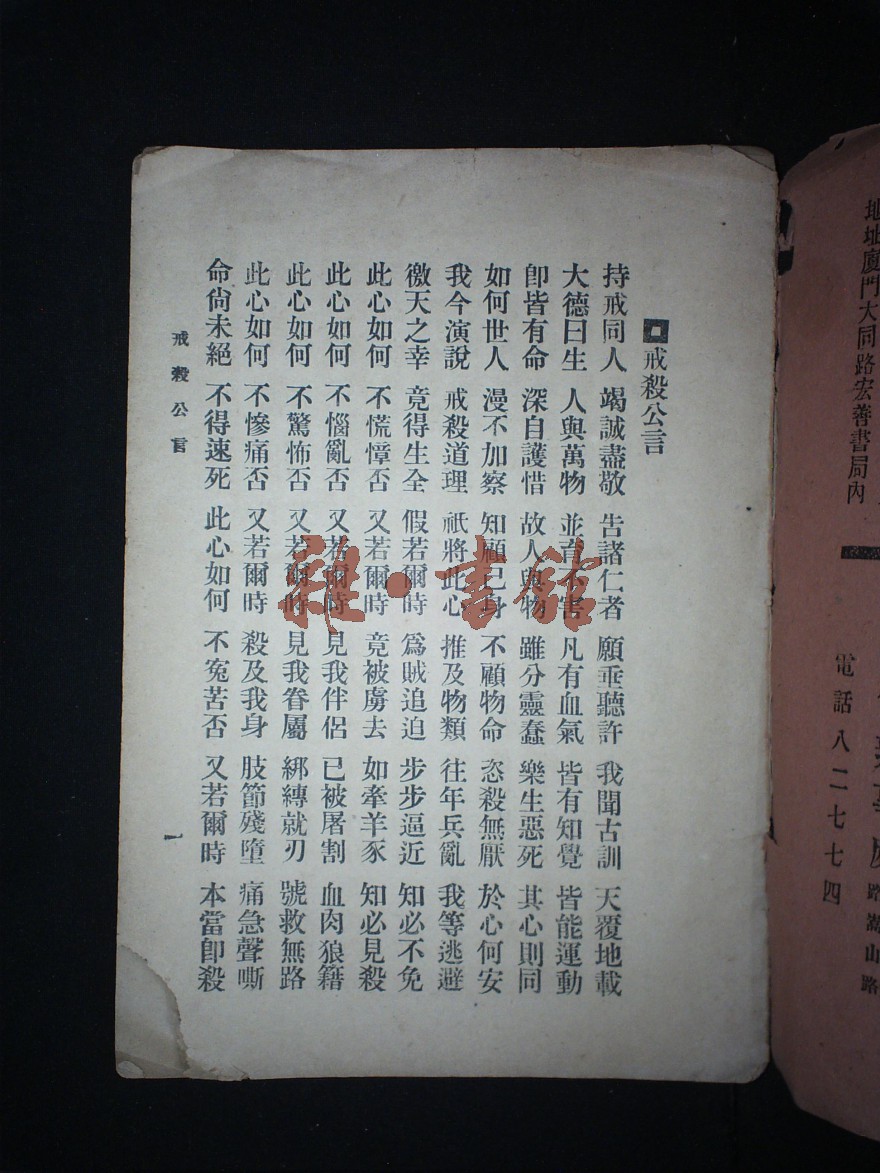 地址廈門大同路宏善書局內
電話八二七七四
路嵩山路
戒殺公言
持戒同人 竭誠盡敬 告諸仁者 願垂聽許 我聞古訓 天覆地載
大德曰生 人與萬物 並育不害 凡有血氣 皆有知覺 皆能運動
卽皆有命 深自護惜 故人與物 雖分靈蠢 樂生惡死 其心則同
如何世人 漫不加察 知顧己身 不顧物命 恣殺無厭 於心何安
我今演說 戒殺道理 祇將此心 推及物類 往年兵亂 我等逃避
徼天之幸 竟得生全 假若爾時 爲賊追迫 步步逼近 知必不免
此心如何 不慌慞否 又若爾時 竟被虜去 如牽羊豕 知必見殺
此心如何 不惱亂否 又若爾時 見我伴侶 已被屠割 血肉狼籍
此心如何 不驚怖否 又若爾時 見我眷屬 綁縛就刃 號救無路
此心如何 不慘痛否 又若爾時 殺及我身 肢節殘墮 痛急聲嘶
命尙未絕 不得速死 此心如何 不寃苦否 又若爾時 本當卽殺
戒殺公言
一
雜·書館